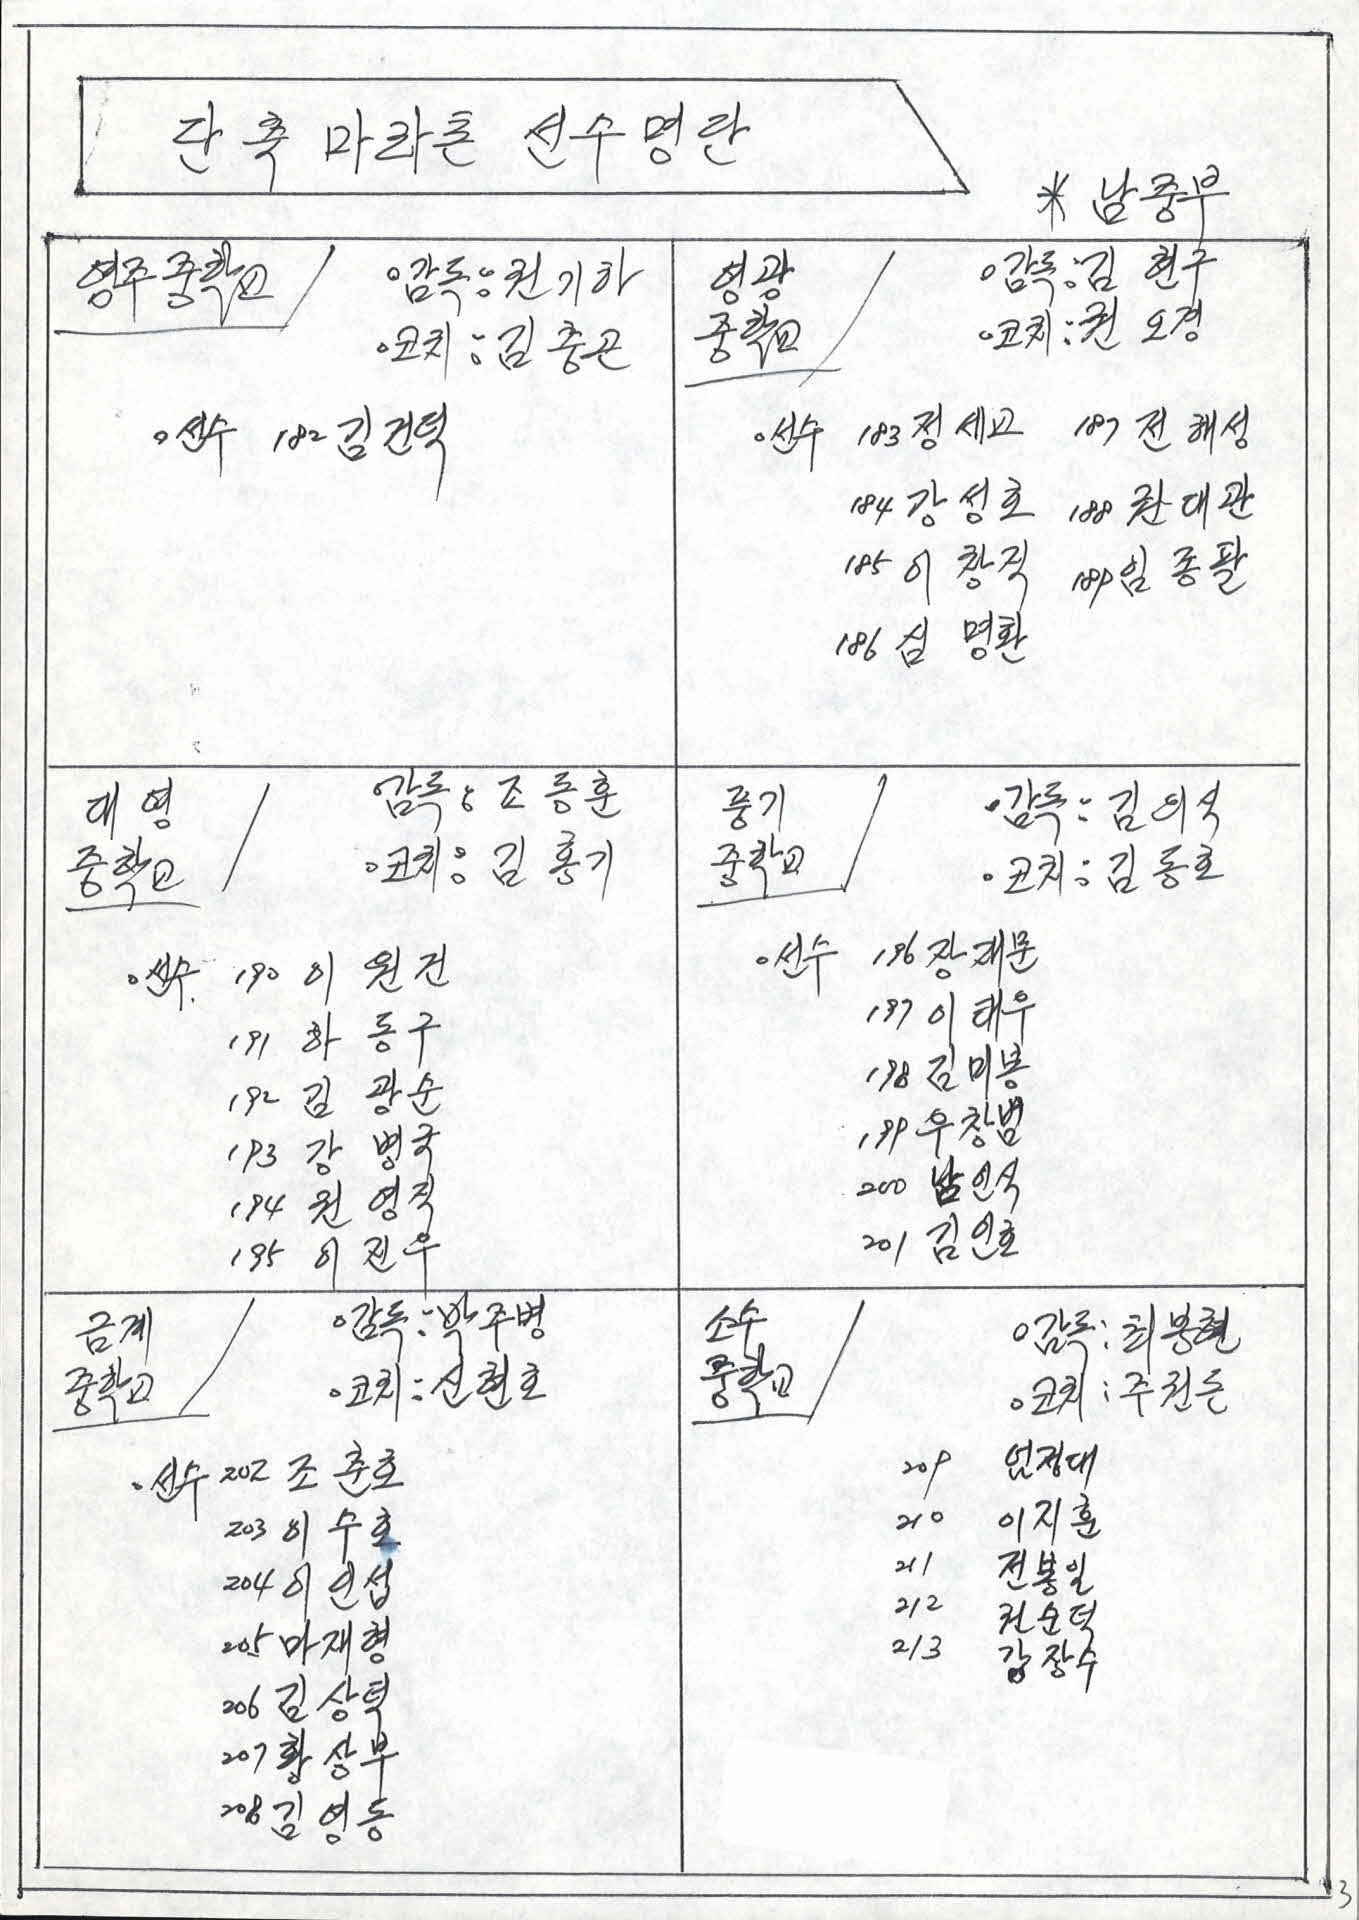 단축 마라톤 선수명단
* 남중부
영주중학교
감독: 권기하
코치: 김종근
선수 182 김건덕
영광
중학교
감독: 김현구
코치: 권오경
선수 183 정세교 187 전해성
184 강성호 188 권대관
185 이창직 189 임종팔
186 심명환
대영
중학교
감독: 조동훈
코치: 김홍기
선수 190 이원건
191 하동구
192 김광순
193 강병국
194 권영직
195 이진우
풍기
중학교
감독: 김의식
코치: 김동호
선수 196 장재문
197 이태우
198 김미봉
199 우창범
200 남인식
201 김인호
금계
중학교
감독: 박주병
코치: 신현호
선수 202 조춘호
203 이수호
204 이인섭
205 마재형
206 김상덕
207 황상부
208 김영동
소수
중학교
감독: 최봉현
코치: 주권든
209 엄정대
210 이지훈
211 전봉일
212 권순덕
213 장수
3